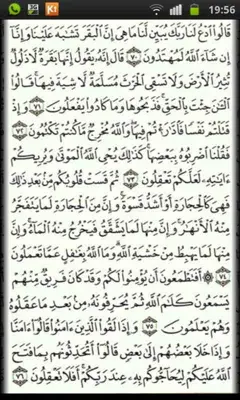 19:56
قَالُوا۟ ٱدْعُ لَنَا رَبَّكَ يُبَيِّن لَّنَا مَا هِىَ إِنَّ ٱلْبَقَرَ تَشَٰبَهَ عَلَيْنَا وَإِنَّآ
إِن شَآءَ ٱللَّهُ لَمُهْتَدُونَ ٧٠ قَالَ إِنَّهُۥ يَقُولُ إِنَّهَا بَقَرَةٌ لَّا ذَلُولٌ
تُثِيرُ ٱلْأَرْضَ وَلَا تَسْقِى ٱلْحَرْثَ مُسَلَّمَةٌ لَّا شِيَةَ فِيهَا قَالُوا۟
ٱلْـَٰٔنَ جِئْتَ بِٱلْحَقِّ فَذَبَحُوهَا وَمَا كَادُوا۟ يَفْعَلُونَ ٧١ وَإِذْ
قَتَلْتُمْ نَفْسًا فَٱدَّٰرَْٰٔتُمْ فِيهَا وَٱللَّهُ مُخْرِجٌ مَّا كُنتُمْ تَكْتُمُونَ ٧٢
فَقُلْنَا ٱضْرِبُوهُ بِبَعْضِهَا كَذَٰلِكَ يُحْىِ ٱللَّهُ ٱلْمَوْتَىٰ وَيُرِيكُمْ
ءَايَٰتِهِۦ لَعَلَّكُمْ تَعْقِلُونَ ٧٣ ثُمَّ قَسَتْ قُلُوبُكُم مِّنۢ بَعْدِ ذَٰلِكَ
فَهِىَ كَٱلْحِجَارَةِ أَوْ أَشَدُّ قَسْوَةً وَإِنَّ مِنَ ٱلْحِجَارَةِ لَمَا يَتَفَجَّرُ
مِنْهُ ٱلْأَنْهَٰرُ وَإِنَّ مِنْهَا لَمَا يَشَّقَّقُ فَيَخْرُجُ مِنْهُ ٱلْمَآءُ وَإِنَّ
مِنْهَا لَمَا يَهْبِطُ مِنْ خَشْيَةِ ٱللَّهِ وَمَا ٱللَّهُ بِغَٰفِلٍ عَمَّا تَعْمَلُونَ
٧٤ أَفَتَطْمَعُونَ أَن يُؤْمِنُوا۟ لَكُمْ وَقَدْ كَانَ فَرِيقٌ مِّنْهُمْ
يَسْمَعُونَ كَلَٰمَ ٱللَّهِ ثُمَّ يُحَرِّفُونَهُۥ مِنۢ بَعْدِ مَا عَقَلُوهُ
وَهُمْ يَعْلَمُونَ ٧٥ وَإِذَا لَقُوا۟ ٱلَّذِينَ ءَامَنُوا۟ قَالُوٓا۟ ءَامَنَّا
وَإِذَا خَلَا بَعْضُهُمْ إِلَىٰ بَعْضٍ قَالُوٓا۟ أَتُحَدِّثُونَهُم بِمَا فَتَحَ
ٱللَّهُ عَلَيْكُمْ لِيُحَآجُّوكُم بِهِۦ عِندَ رَبِّكُمْ أَفَلَا تَعْقِلُونَ ٧٦